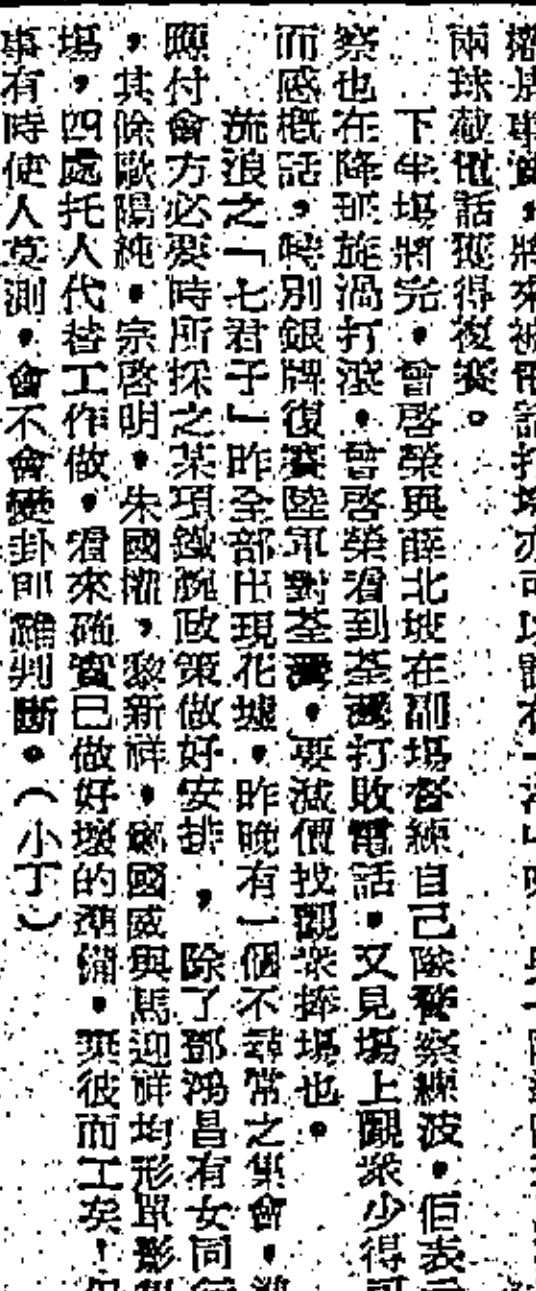 將來被電話打
兩球敲電話獲得復賽。
下半場將完，曾啓榮與薛北坡在副場督練自己隊警察練波，但表示
察也在降班旋渦打滾，曾啓榮看到荃灣打敗電話，又見場上觀衆少得可
而感概話，時別銀牌復賽陸軍對荃灣，要減價找觀衆捧場也。
流浪之「七君子」昨全部出現花墟，昨晚有一個不尋常之集會，
應付會方必要時所採之某項鐵腕政策做好安排，除了鄧鴻昌有女同行
，其餘歐陽純，宗啓明，朱國權，黎新祥，鄭國威與馬迎祥均形單影
場，四處托人代替工作做，看來確實已做好壞的準備，東彼而工矣！但
事有時使人莫測，會不會變卦即難判斷。（小丁）